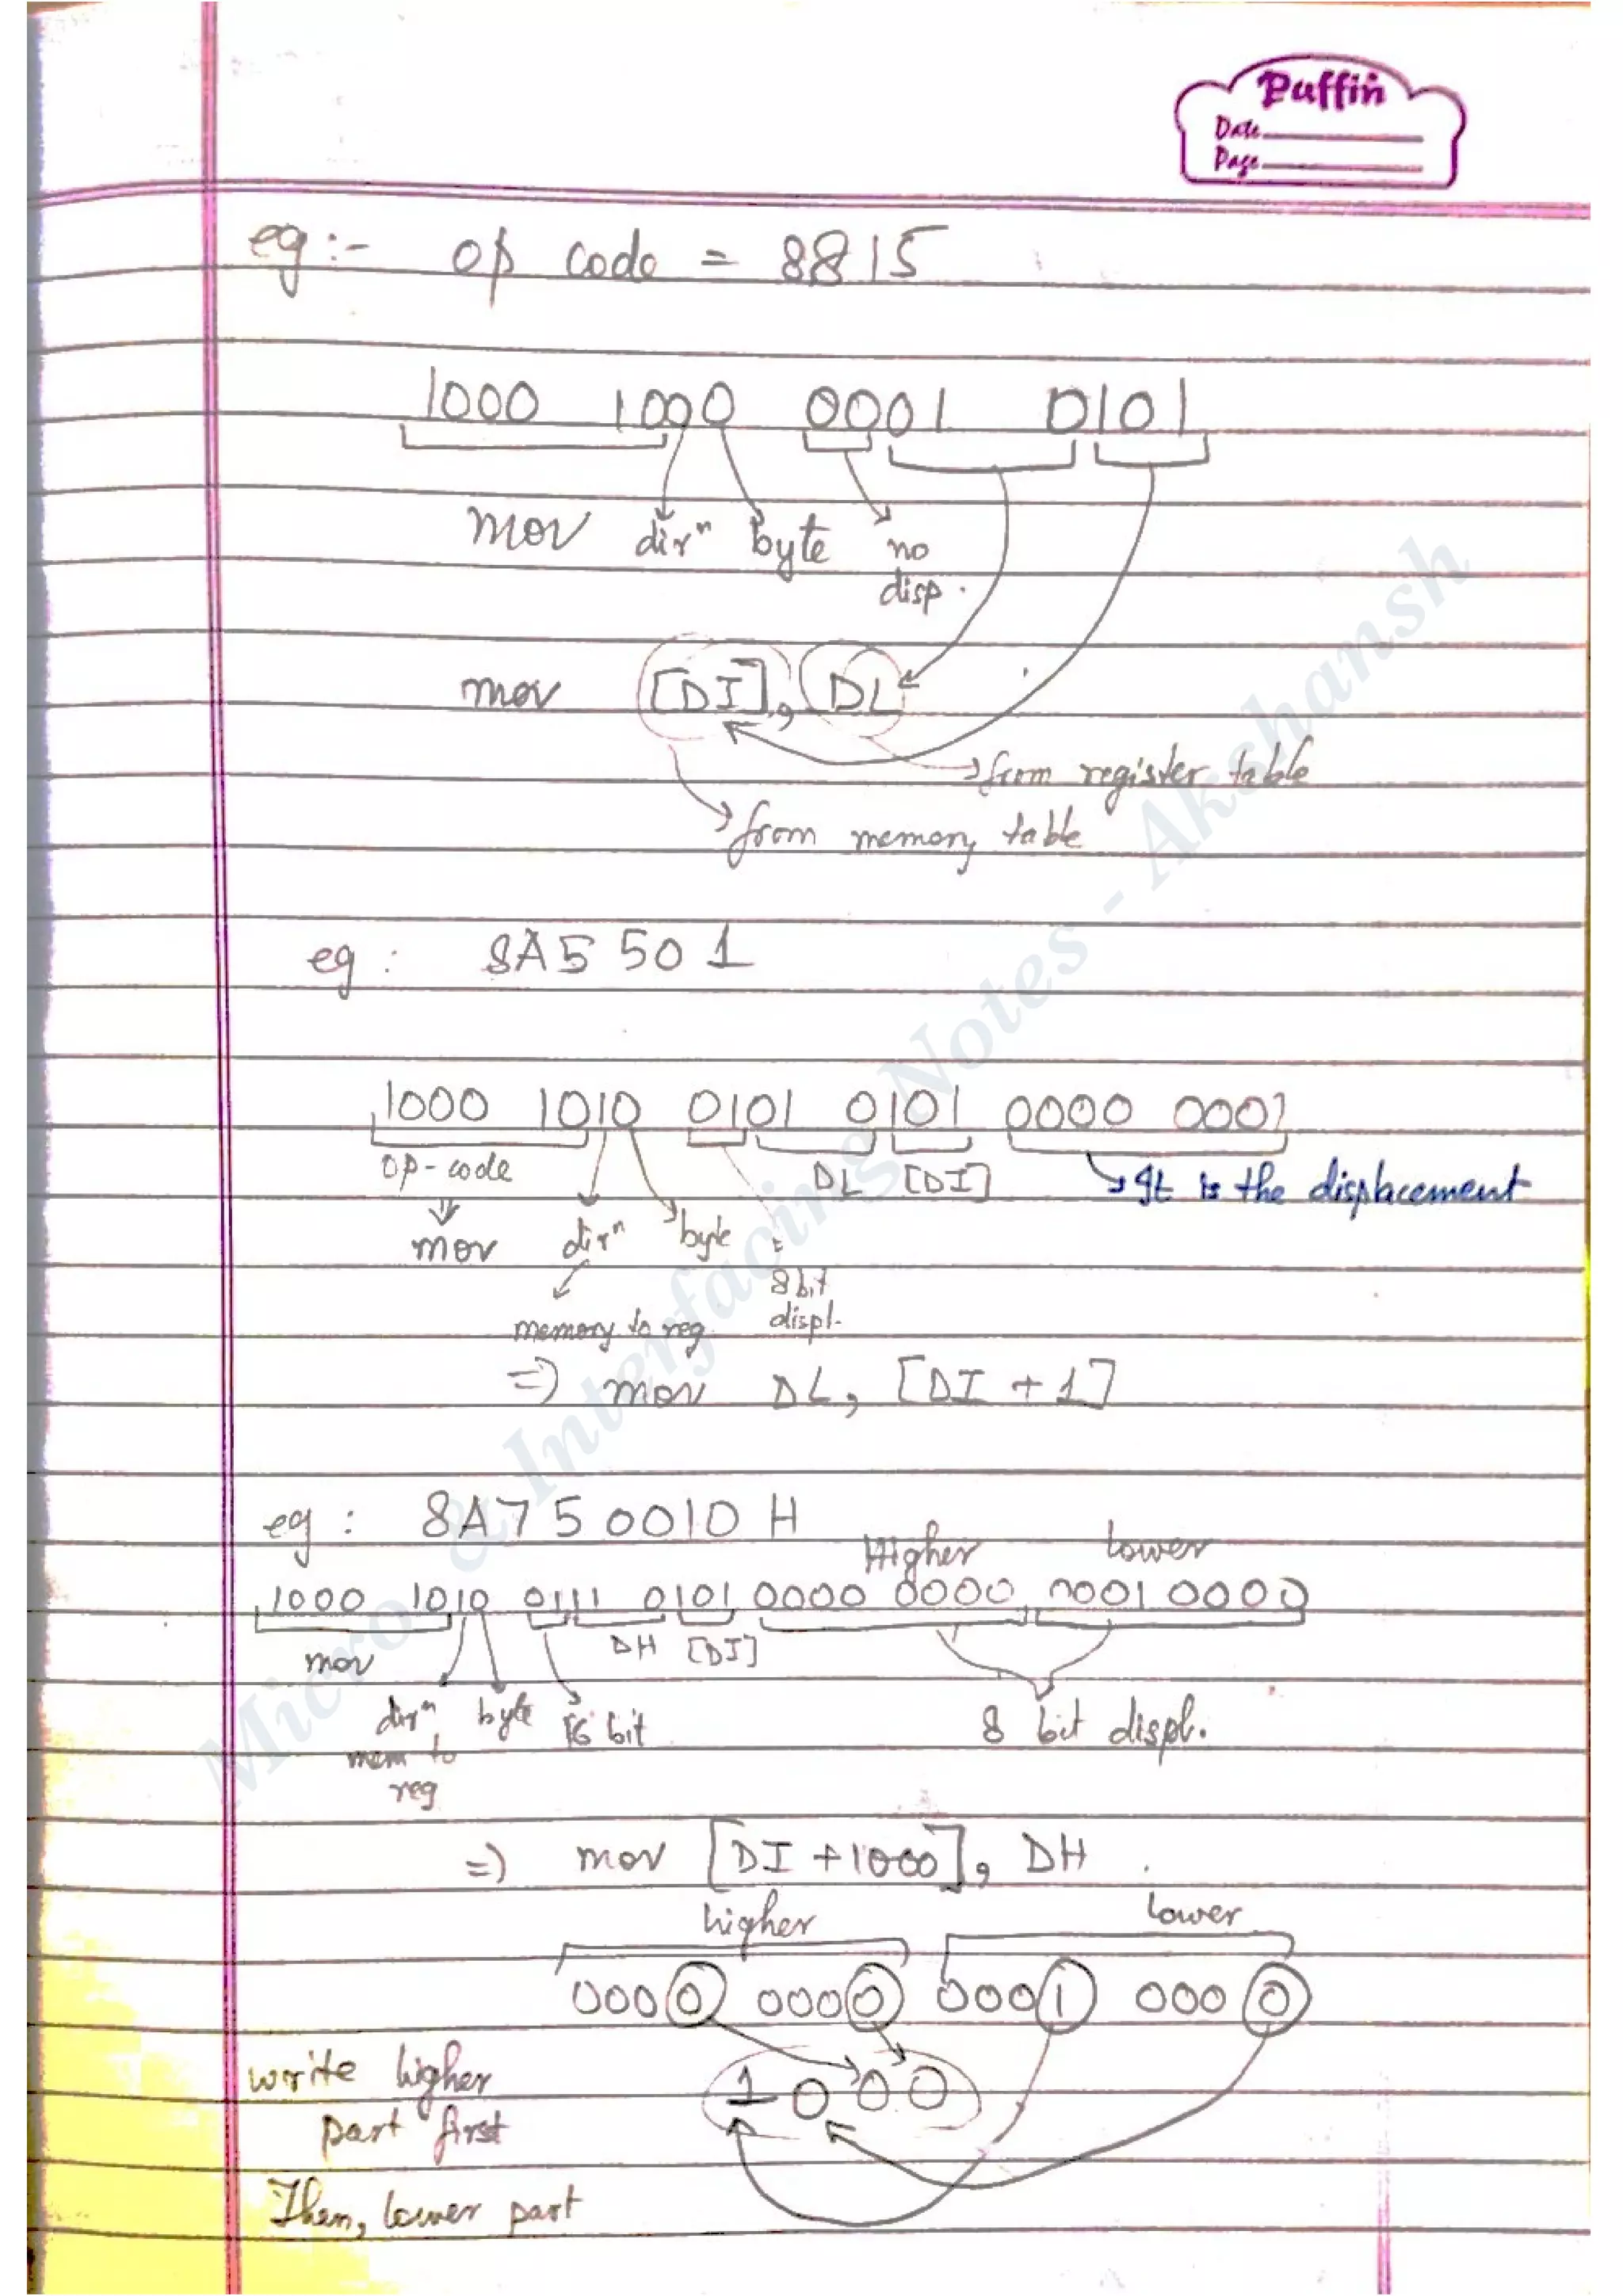 Puffin
Date
Page
eg:- op code = 8815
1000 1000 0001 0101
mov dirⁿ byte no
disp.
mov [DI], DL
from register table
from memory table
eg: 8A5501
1000 1010 0101 0101 0000 0001
op-code DL [DI] It is the displacement
mov dirⁿ byte
8 bit
memory to reg. displ.
=> mov DL, [DI + 1]
eg: 8A750010 H
Higher Lower
1000 1010 0111 0101 0000 0000 0001 0000
mov DH [DI]
dirⁿ byte 16 bit 8 bit displ.
mem to
reg
=> mov [DI + 1000], DH
higher lower
0000 0000 0001 0000
write higher 1000
part first
Then, lower part
Micro & Interfacing Notes - Akshansh